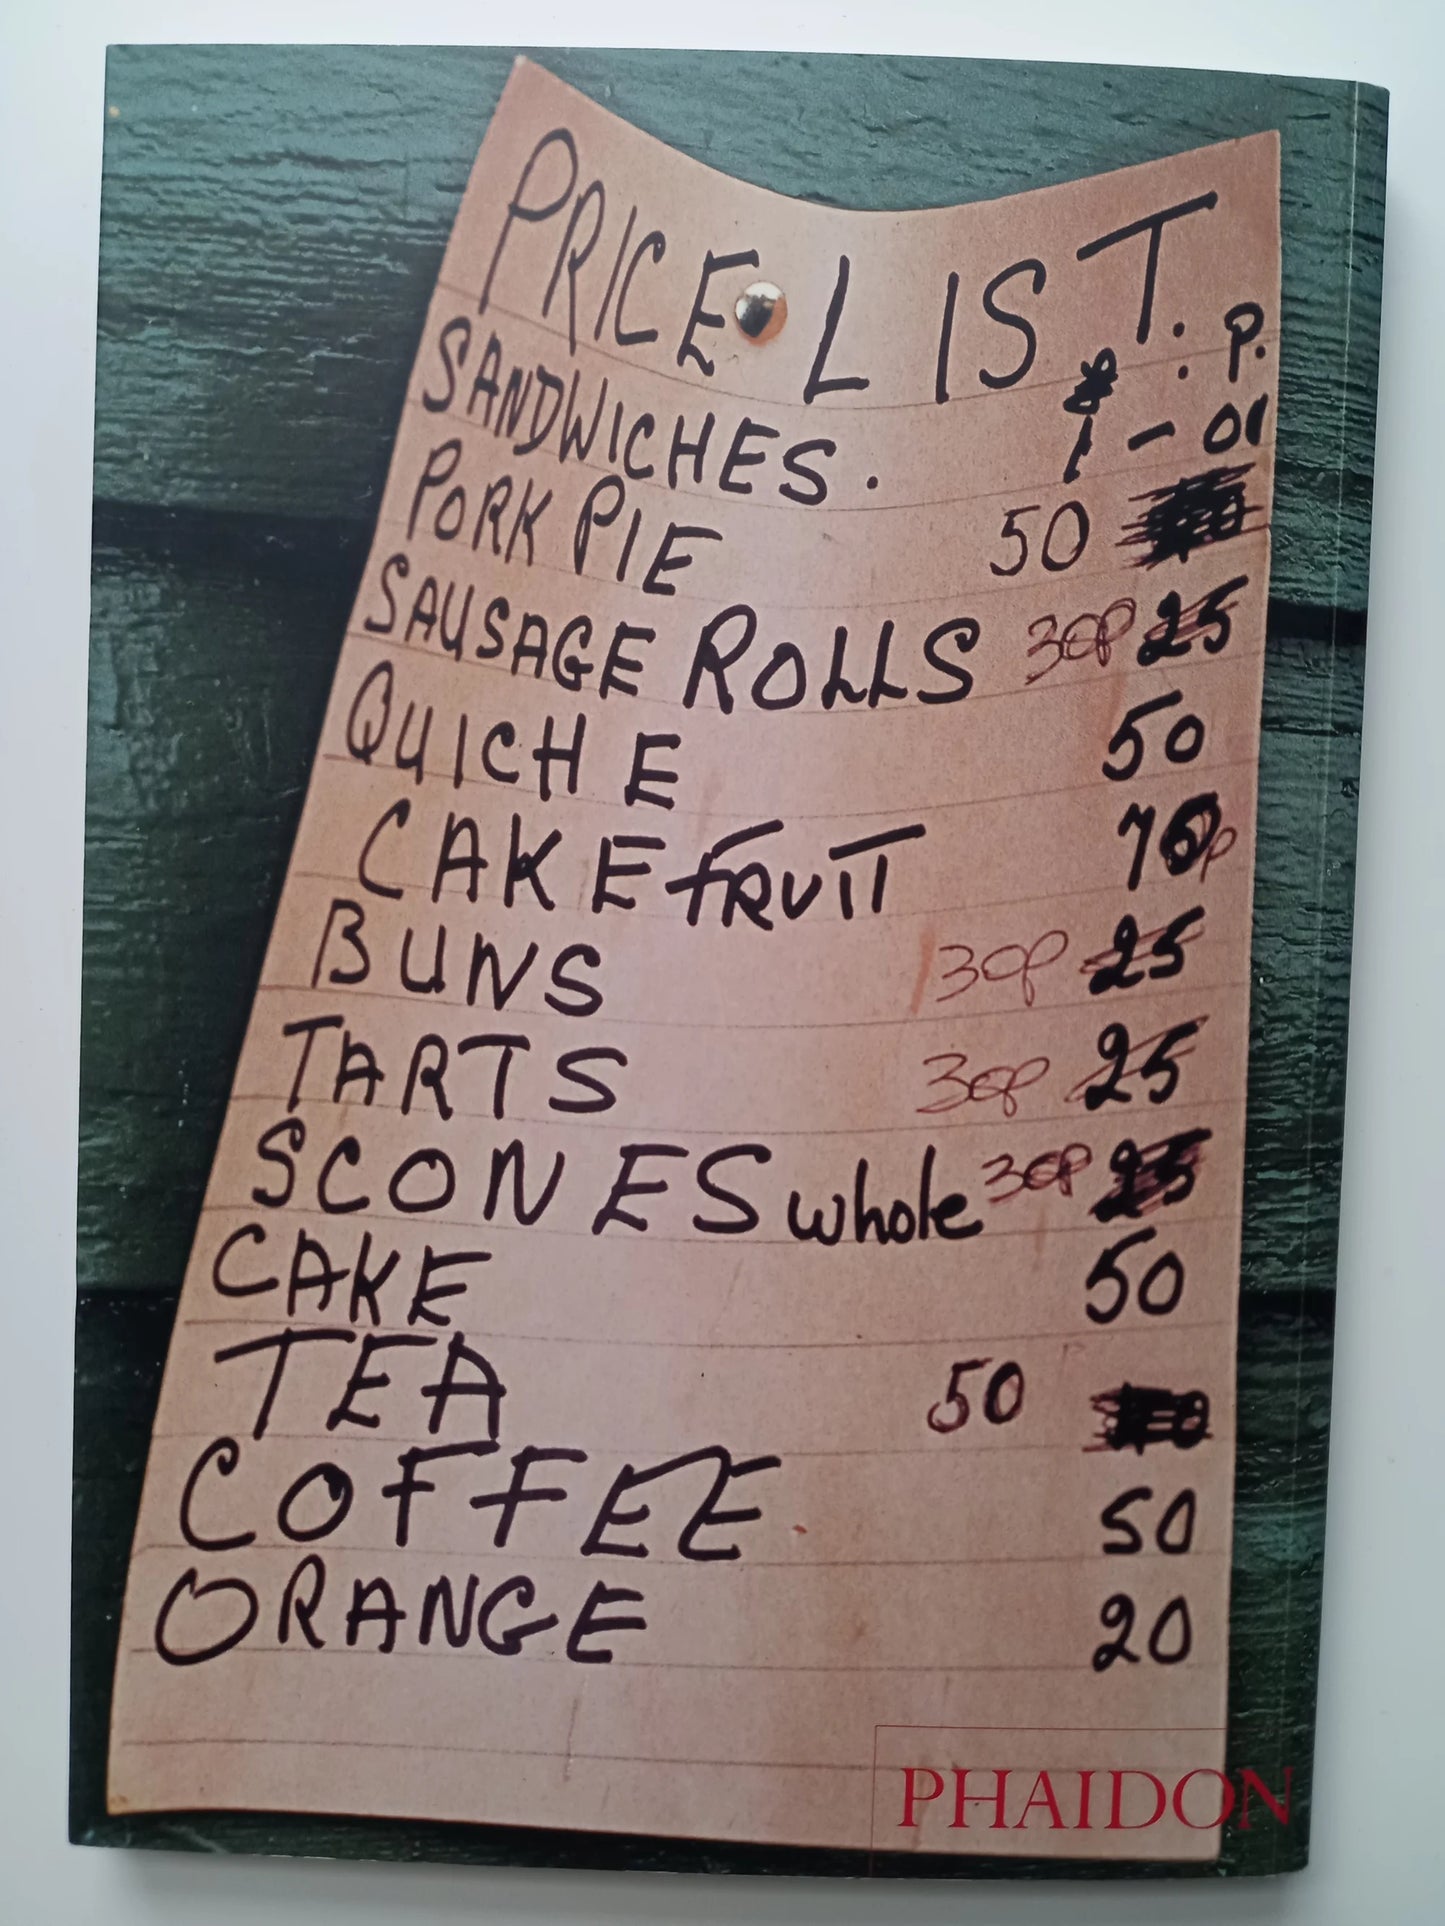 PRICE LIST. P.
SANDWICHES. 1 - 01
PORK PIE 50
SAUSAGE ROLLS 30p 25
QUICHE 50
CAKE FRUIT 70p
BUNS 30p 25
TARTS 30p 25
SCONES whole 30p 25
CAKE 50
TEA 50
COFFEE 50
ORANGE 20
PHAIDON